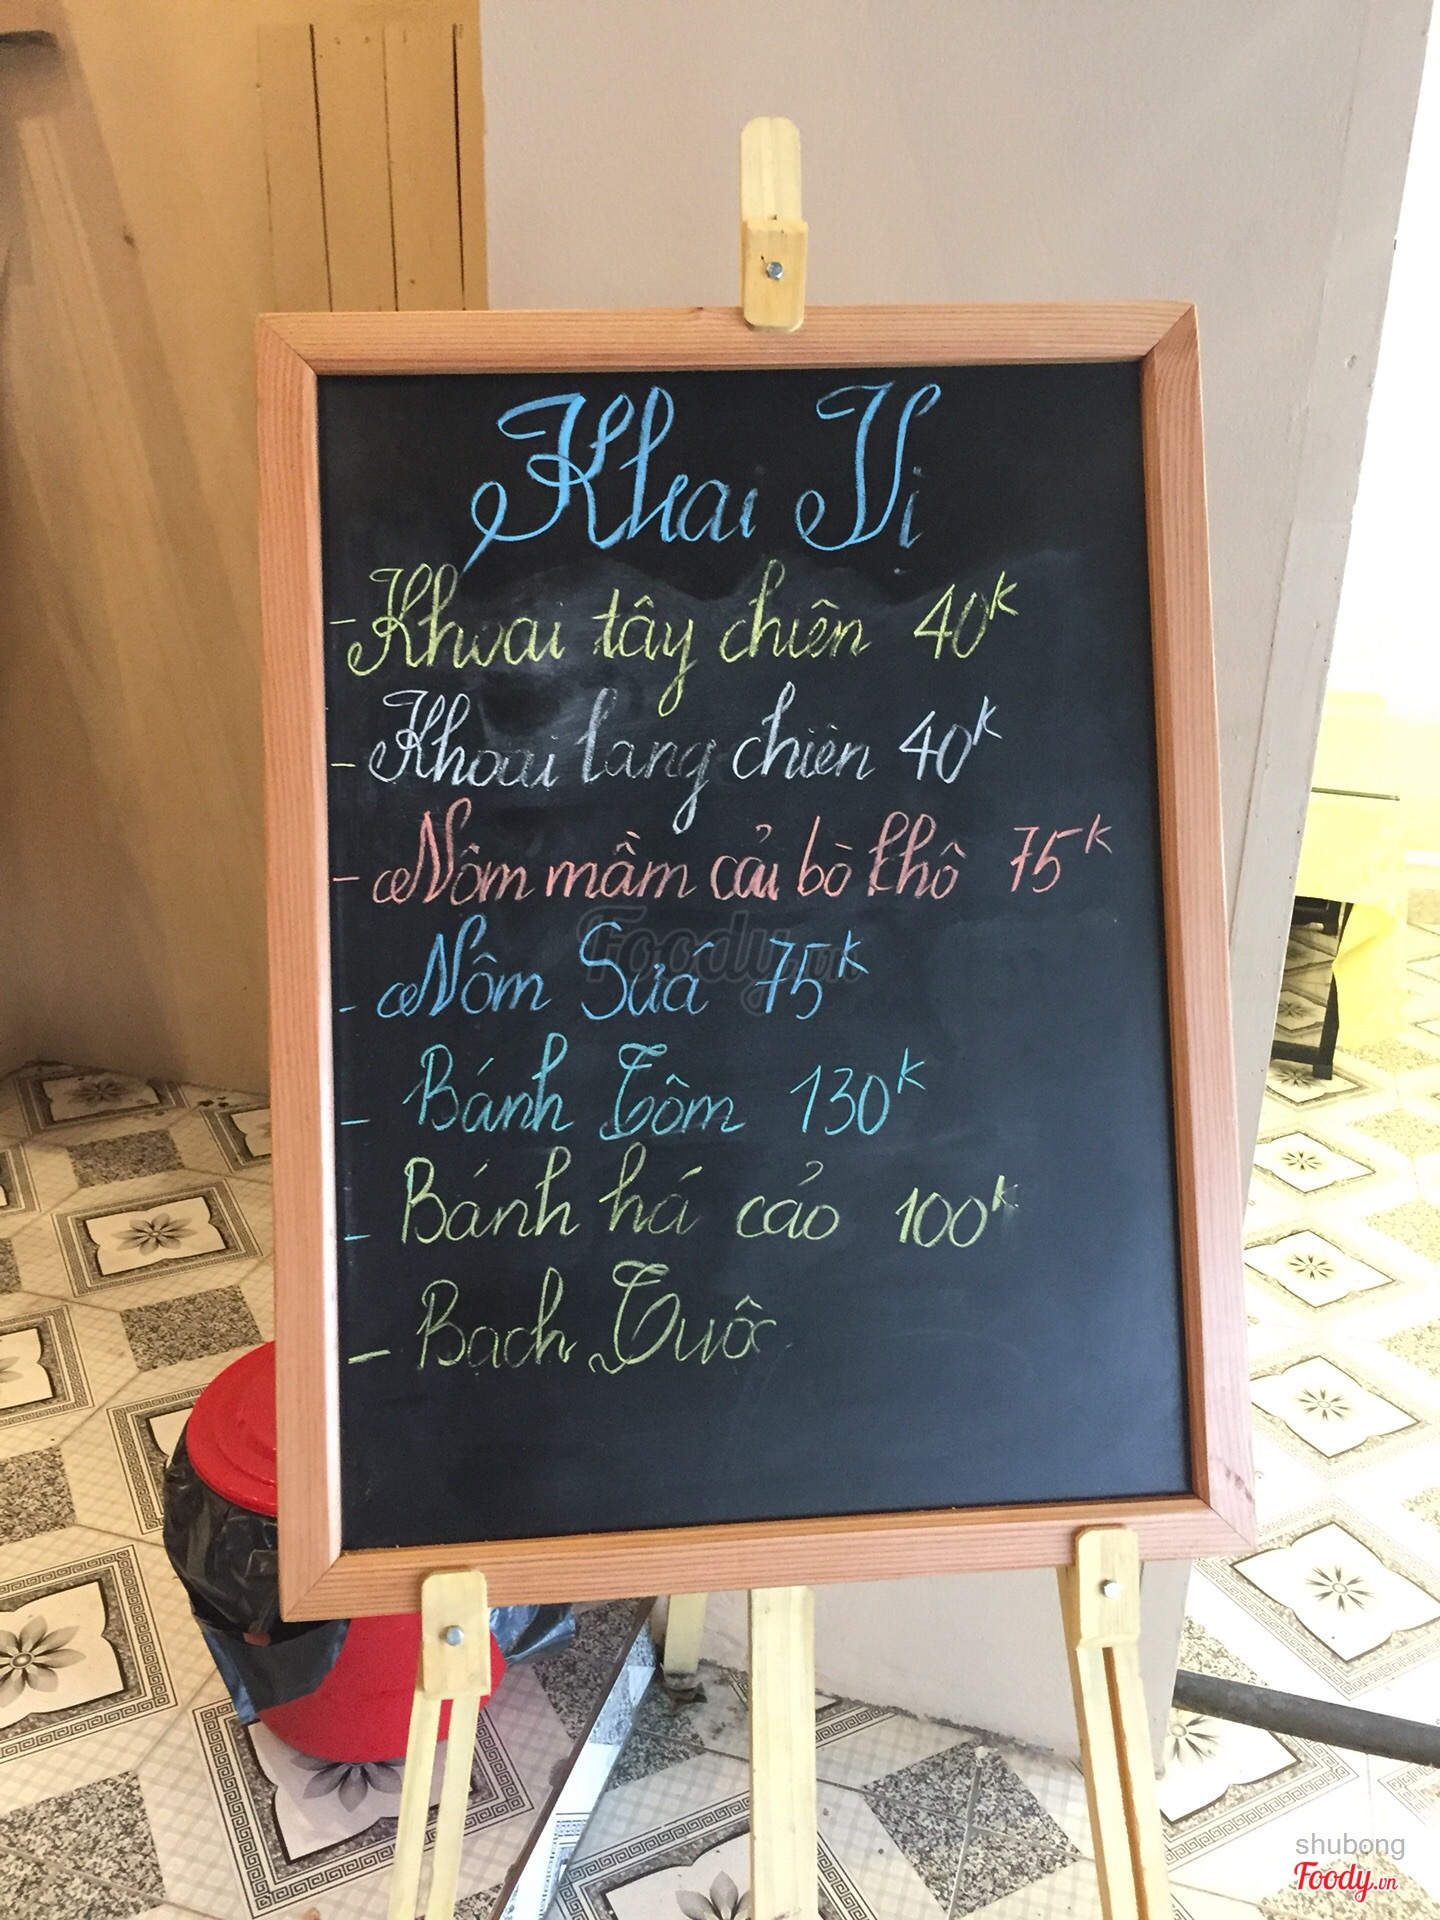 Khai Vị
- Khoai tây chiên 40K
- Khoai lang chiên 40K
- Nôm mầm cải bò khô 75K
- Nôm Sứá 75K
- Bánh Tôm 130K
- Bánh há cảo 100K
- Bạch Tuộc
Foody.vn
shubong
Foody.vn